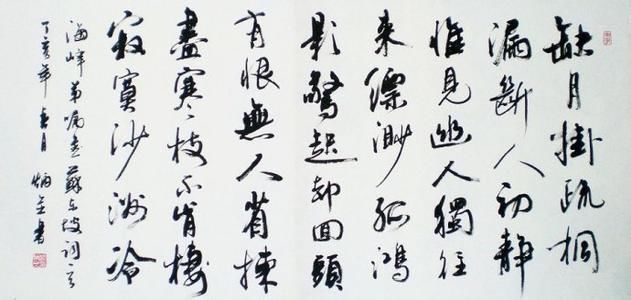 缺月掛疏桐
漏斷人初靜
惟見幽人獨往
來縹渺孤鴻
影驚起却回頭
有恨無人省揀
盡寒枝不肯棲
寂寞沙洲冷
海峰弟囑書蘇東坡詞
丁亥年春月書